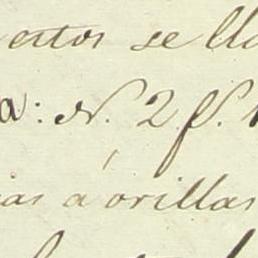 estos se lla
a: N. 2 f. 1
ias á orillas